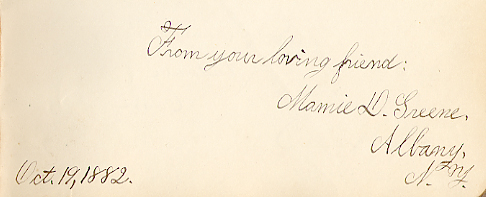 From your loving friend:
Mamie D. Greene.
Albany.
Oct. 19, 1882.
N. Y.